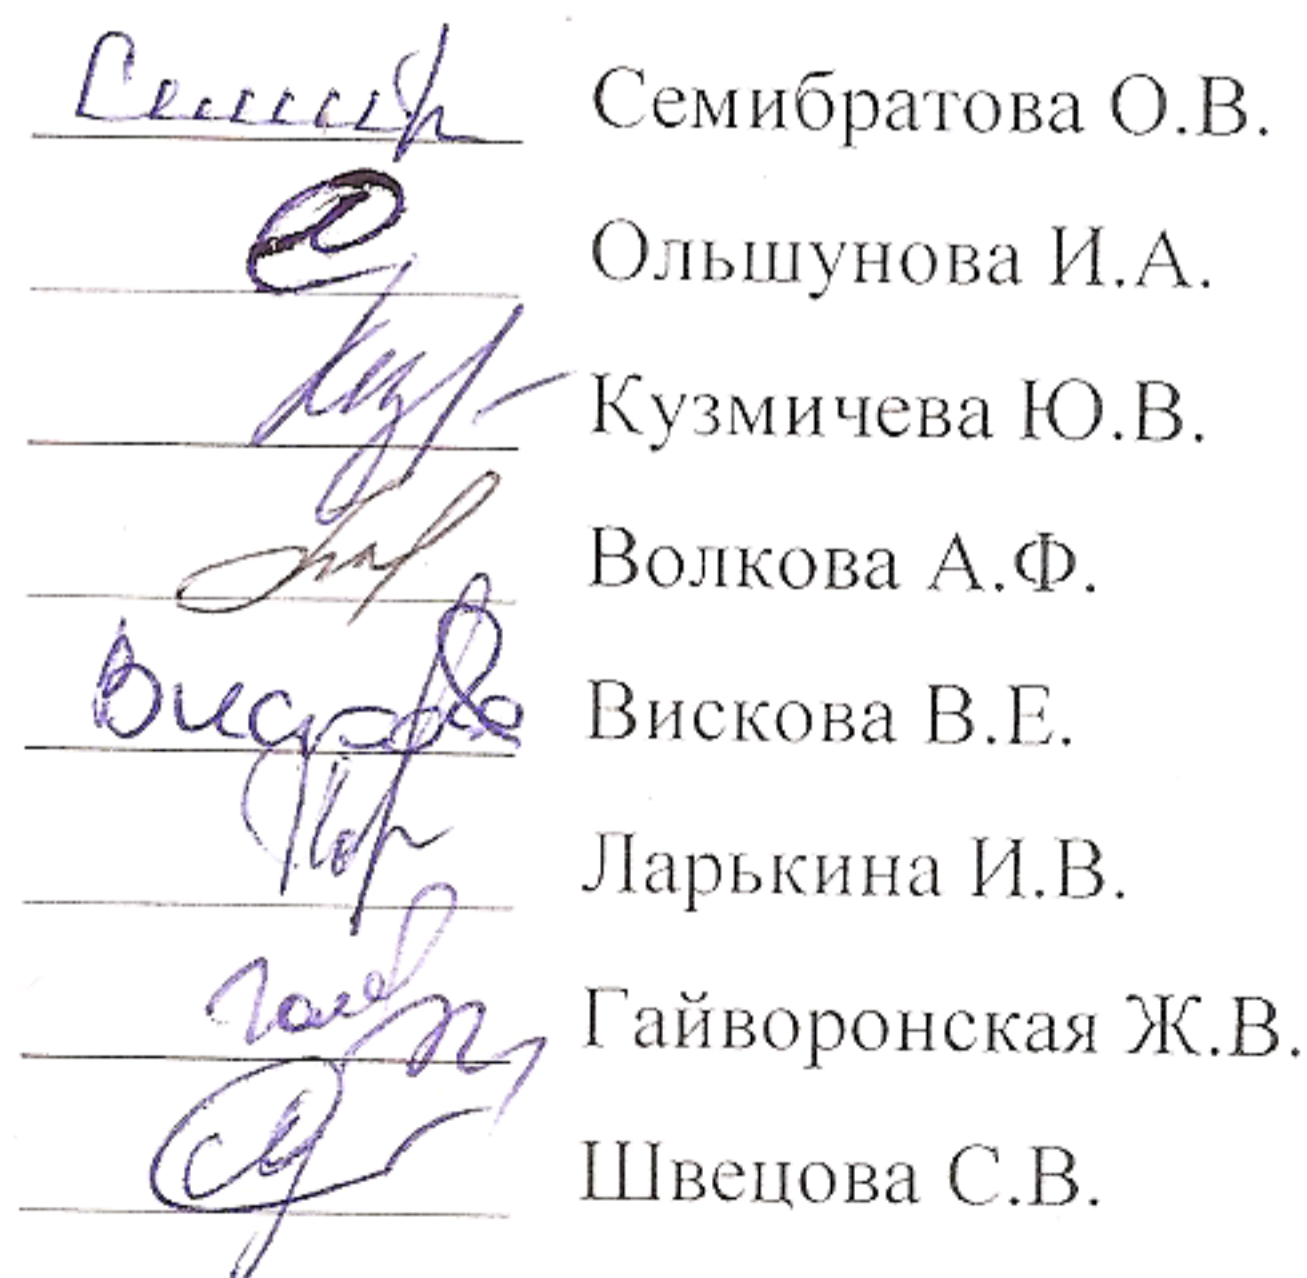 Семибратова О.В.
Ольшунова И.А.
Кузмичева Ю.В.
Волкова А.Ф.
Вискова В.Е.
Ларькина И.В.
Гайворонская Ж.В.
Швецова С.В.